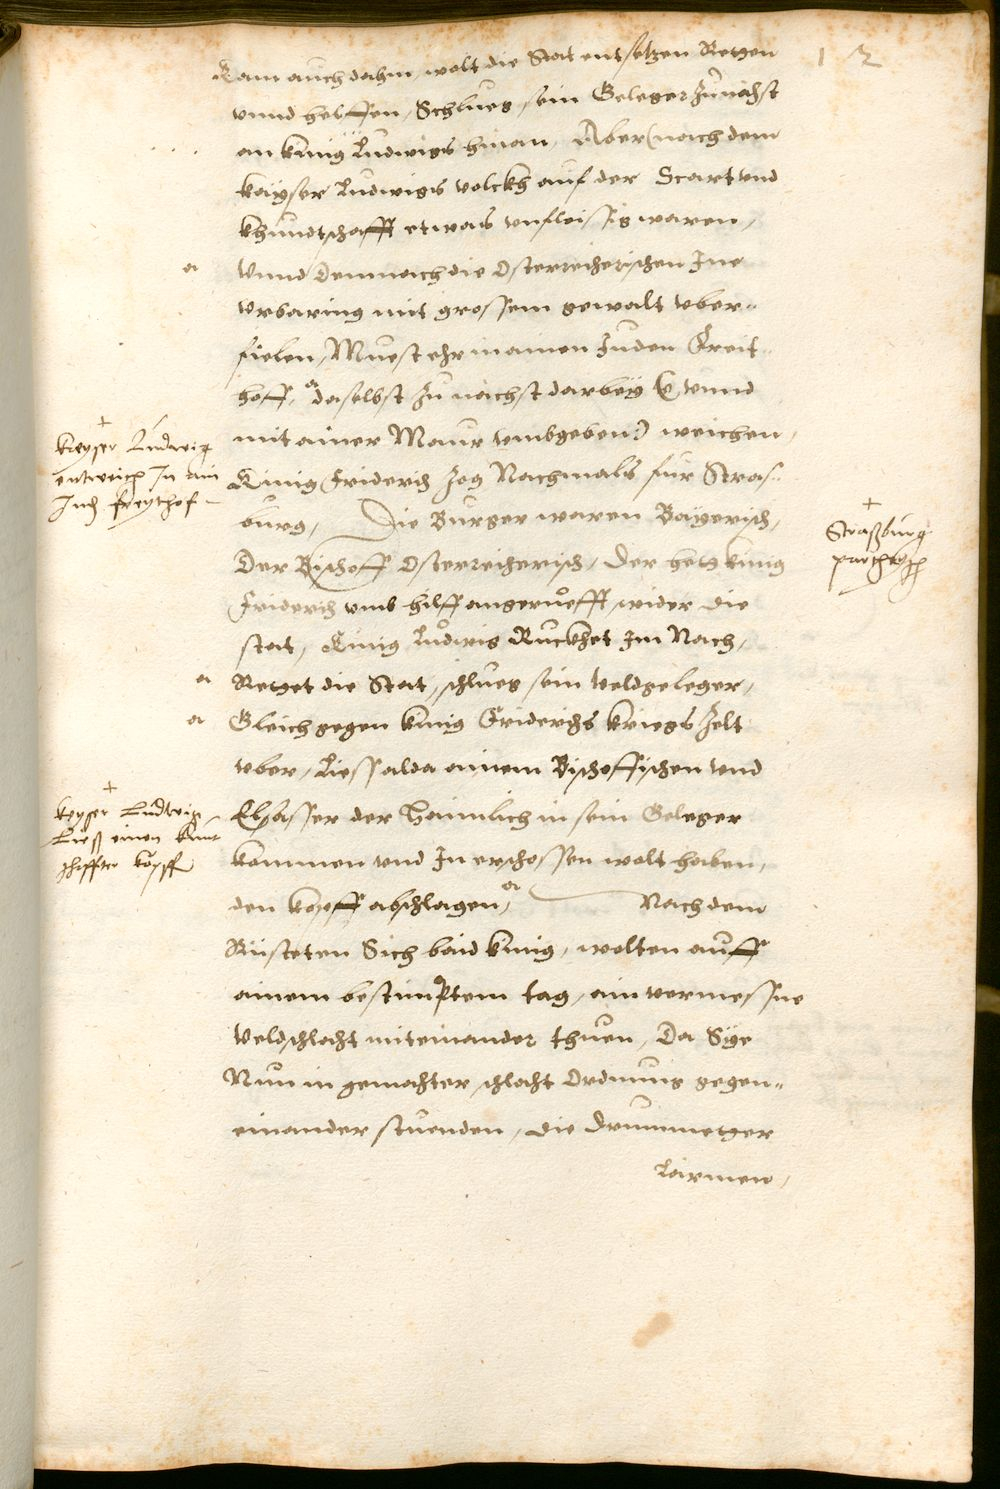 12
Kam auch dahin, wolt die Stat entsetzen Retten
vnnd helffen, Schlueg sein Geleger Zunächst
an künig Ludwigs hinan, Aber (nach dem
kayser Ludwigs volckh auf der Scart vnd
khundtschafft etwas vnfleissig waren,
Vnnd demnach die Osterreicherischen Ine
vrbaring mit grossem gewalt vber-
fielen, Muest ehr in ainen Juden Freit-
hoff, daselbst Zu nächst darbey (vnnd
mit ainer Maur vmbgeben) weichen,
Künig Friderich Zog Nachmals für Stras-
burg, Die Burger waren Bayerisch,
Der Bischoff Osterreicherisch, Der hett künig
Friderich vmb hilff angeruefft, wider die
stat, Künig Ludwig Ruckhet Im Nach,
Rettet die Stat, schlueg sein Veldgeleger,
Gleich gegen künig Friderichs kriegs Zelt
vber, Liess alda ainem Bischoffischen vnd
Elsässer der Haimlich in sein Geleger
kommen vnd In erschossen wolt haben,
den kopff abschlagen, Nach dem
Rüsteten Sich baid künig, wolten auff
ainem bestimptem tag, ain vermessne
Veldschlacht miteinander thuen, Da Sye
Nun in gemachter schlacht Ordnung gegen-
einander stuenden, die Drummetger
Lärmen,
Keyser Ludwig
entweich In ain
Jud freythof
Straßburg
partheysch
Keyser Ludwig
Ließ einen
köpff